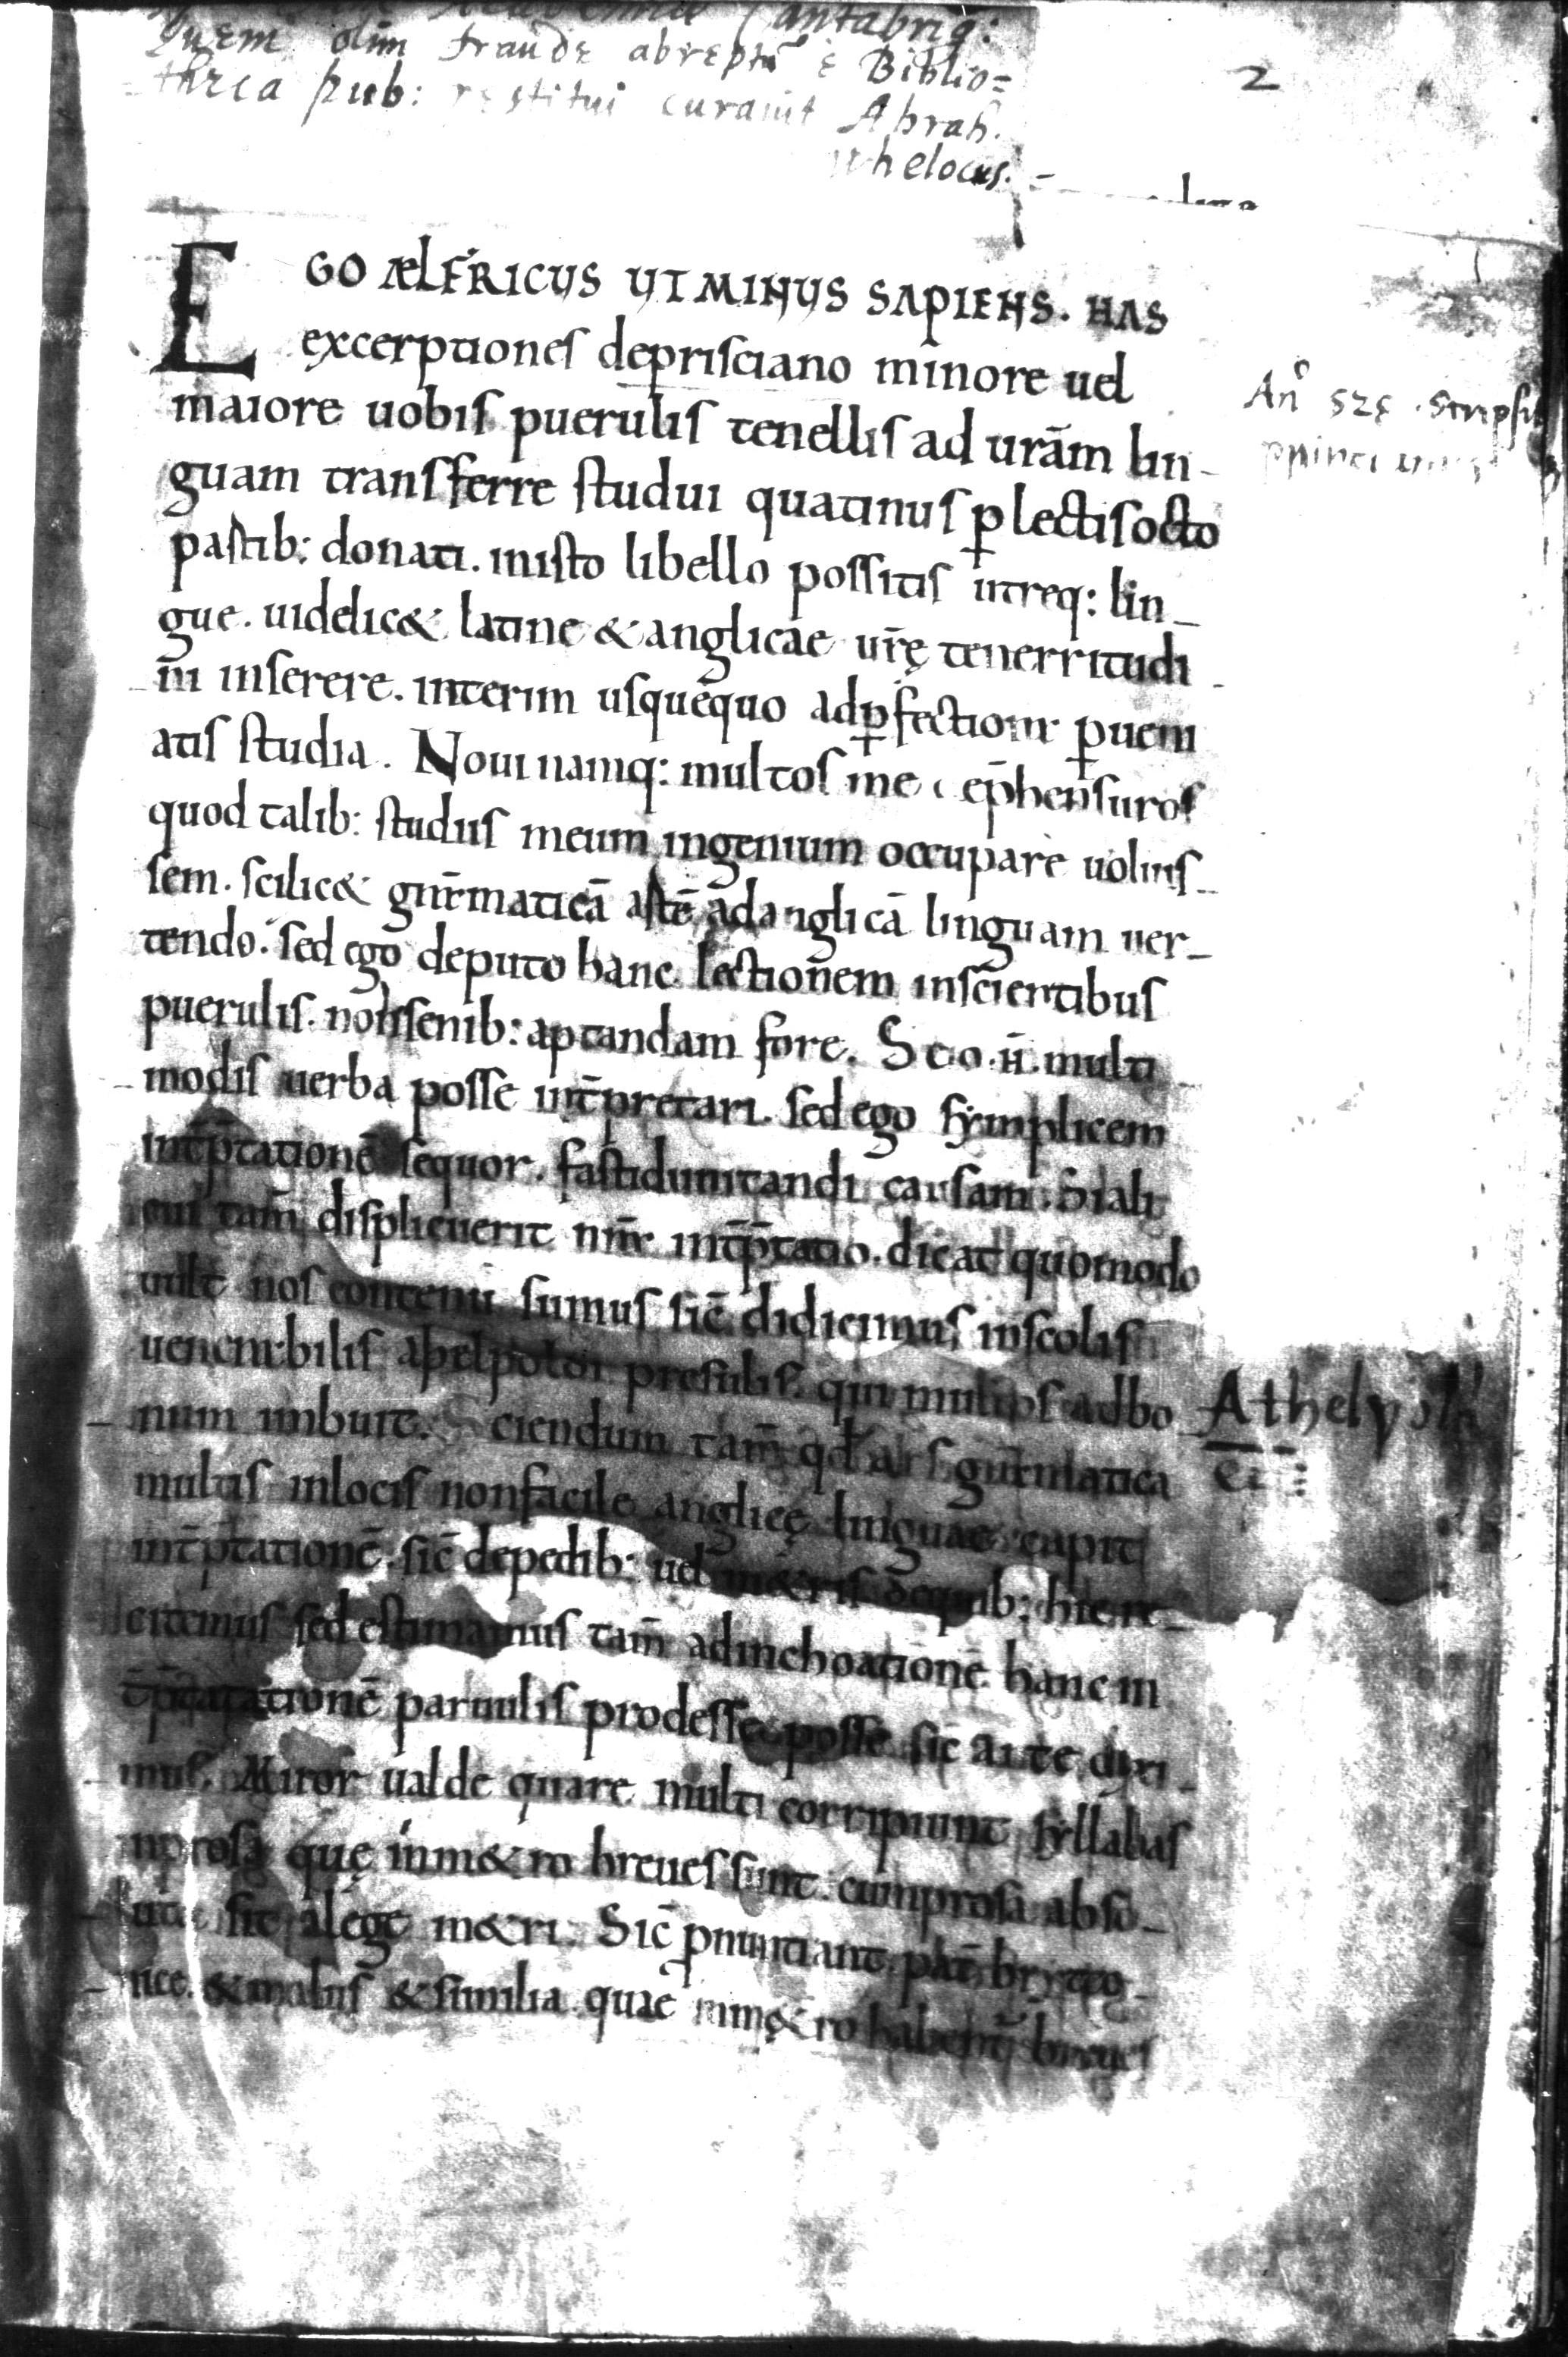 Academiae Cantabrig:
Quem olim fraude abreptū è Biblio=
theca pub: restitui curavit Abrah.
Whelocus.
2
EGO ÆLFRICUS UT MINUS SAPIENS. HAS
excerptiones deprisciano minore uel
maiore uobis puerulis tenellis ad urām lin-
guam transferre studui quatinus ꝑlectis octo
partib: donati. inisto libello possitis utreq: lin-
gue. uidelic& latine & anglicae ur̄ę tenerritudi
ni inserere. interim usquequo adꝑfectiora ꝑueni
atis studia. Noui namq: multos me rep̄hensuros
quod talib: studiis meum ingenium occupare uoluis-
sem. scilic& gram̄maticā artē ad anglicā linguam uer-
tendo. sed ego deputo hanc lectionem inscientibus
puerulis. non senib: aptandam fore. Scio .n̄. multi
modis uerba posse int̄pretari. sed ego symplicem
int̄p̄tationē sequor. fastidii uitandi causam. Si ali
cui tam̄ displicuerit nr̄a int̄p̄tatio. dicat quomodo
uult nos contenti sumus sic̄ didicimus inscolis
uenerabilis aþelpoldi presulis. qui multos adbo
num imbuit. Sciendum tam̄ qđ ars gram̄matica
multis inlocis nonfacile anglicę linguae capit
int̄p̄tationē. sic̄ depedib: uel m&ris dequib: hic re-
citemus sed estimamus tam̄ adinchoationē hanc in
t̄p̄tationē paruulis prodesse posse sic̄ ante dixi-
mus. Miror ualde quare multi corripiunt syllabas
inprosa quę inm&ro breues sunt. cum prosa abso-
luta sit alege m&ri. Sic̄ ꝓnuntiant. pat̄. brytto-
nice. & malus & similia. quae inm&ro habent̄ breues
Athelwold